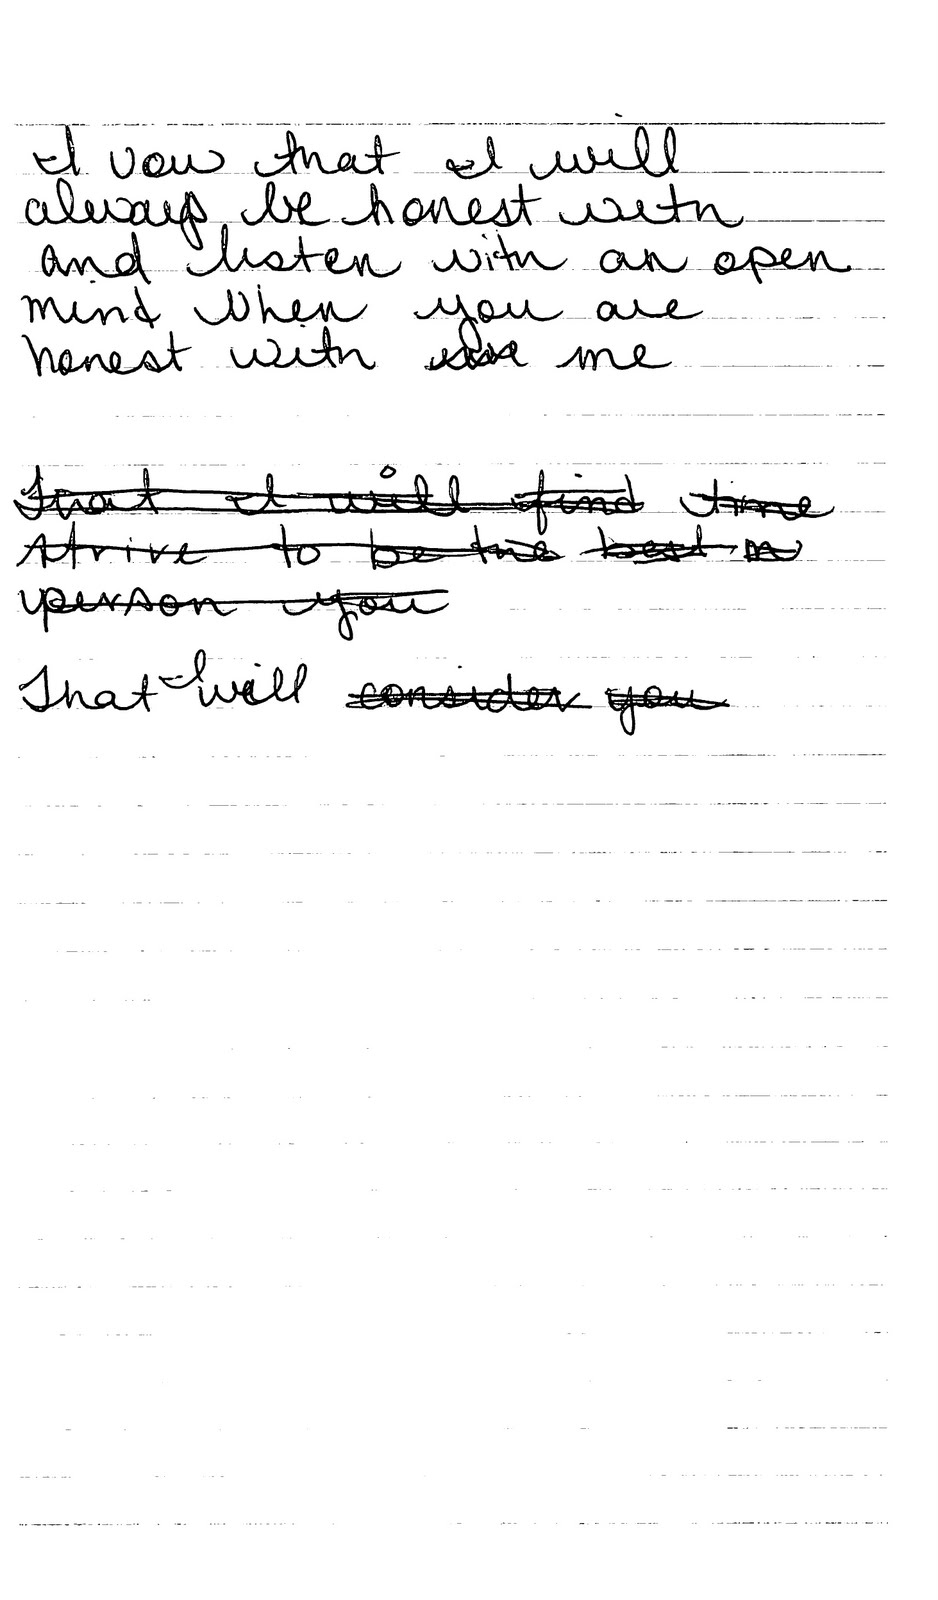 I vow that I will
always be honest with
and listen with an open
mind when you are
honest with me
That I will find time
strive to be the best
person you
That I will consider you